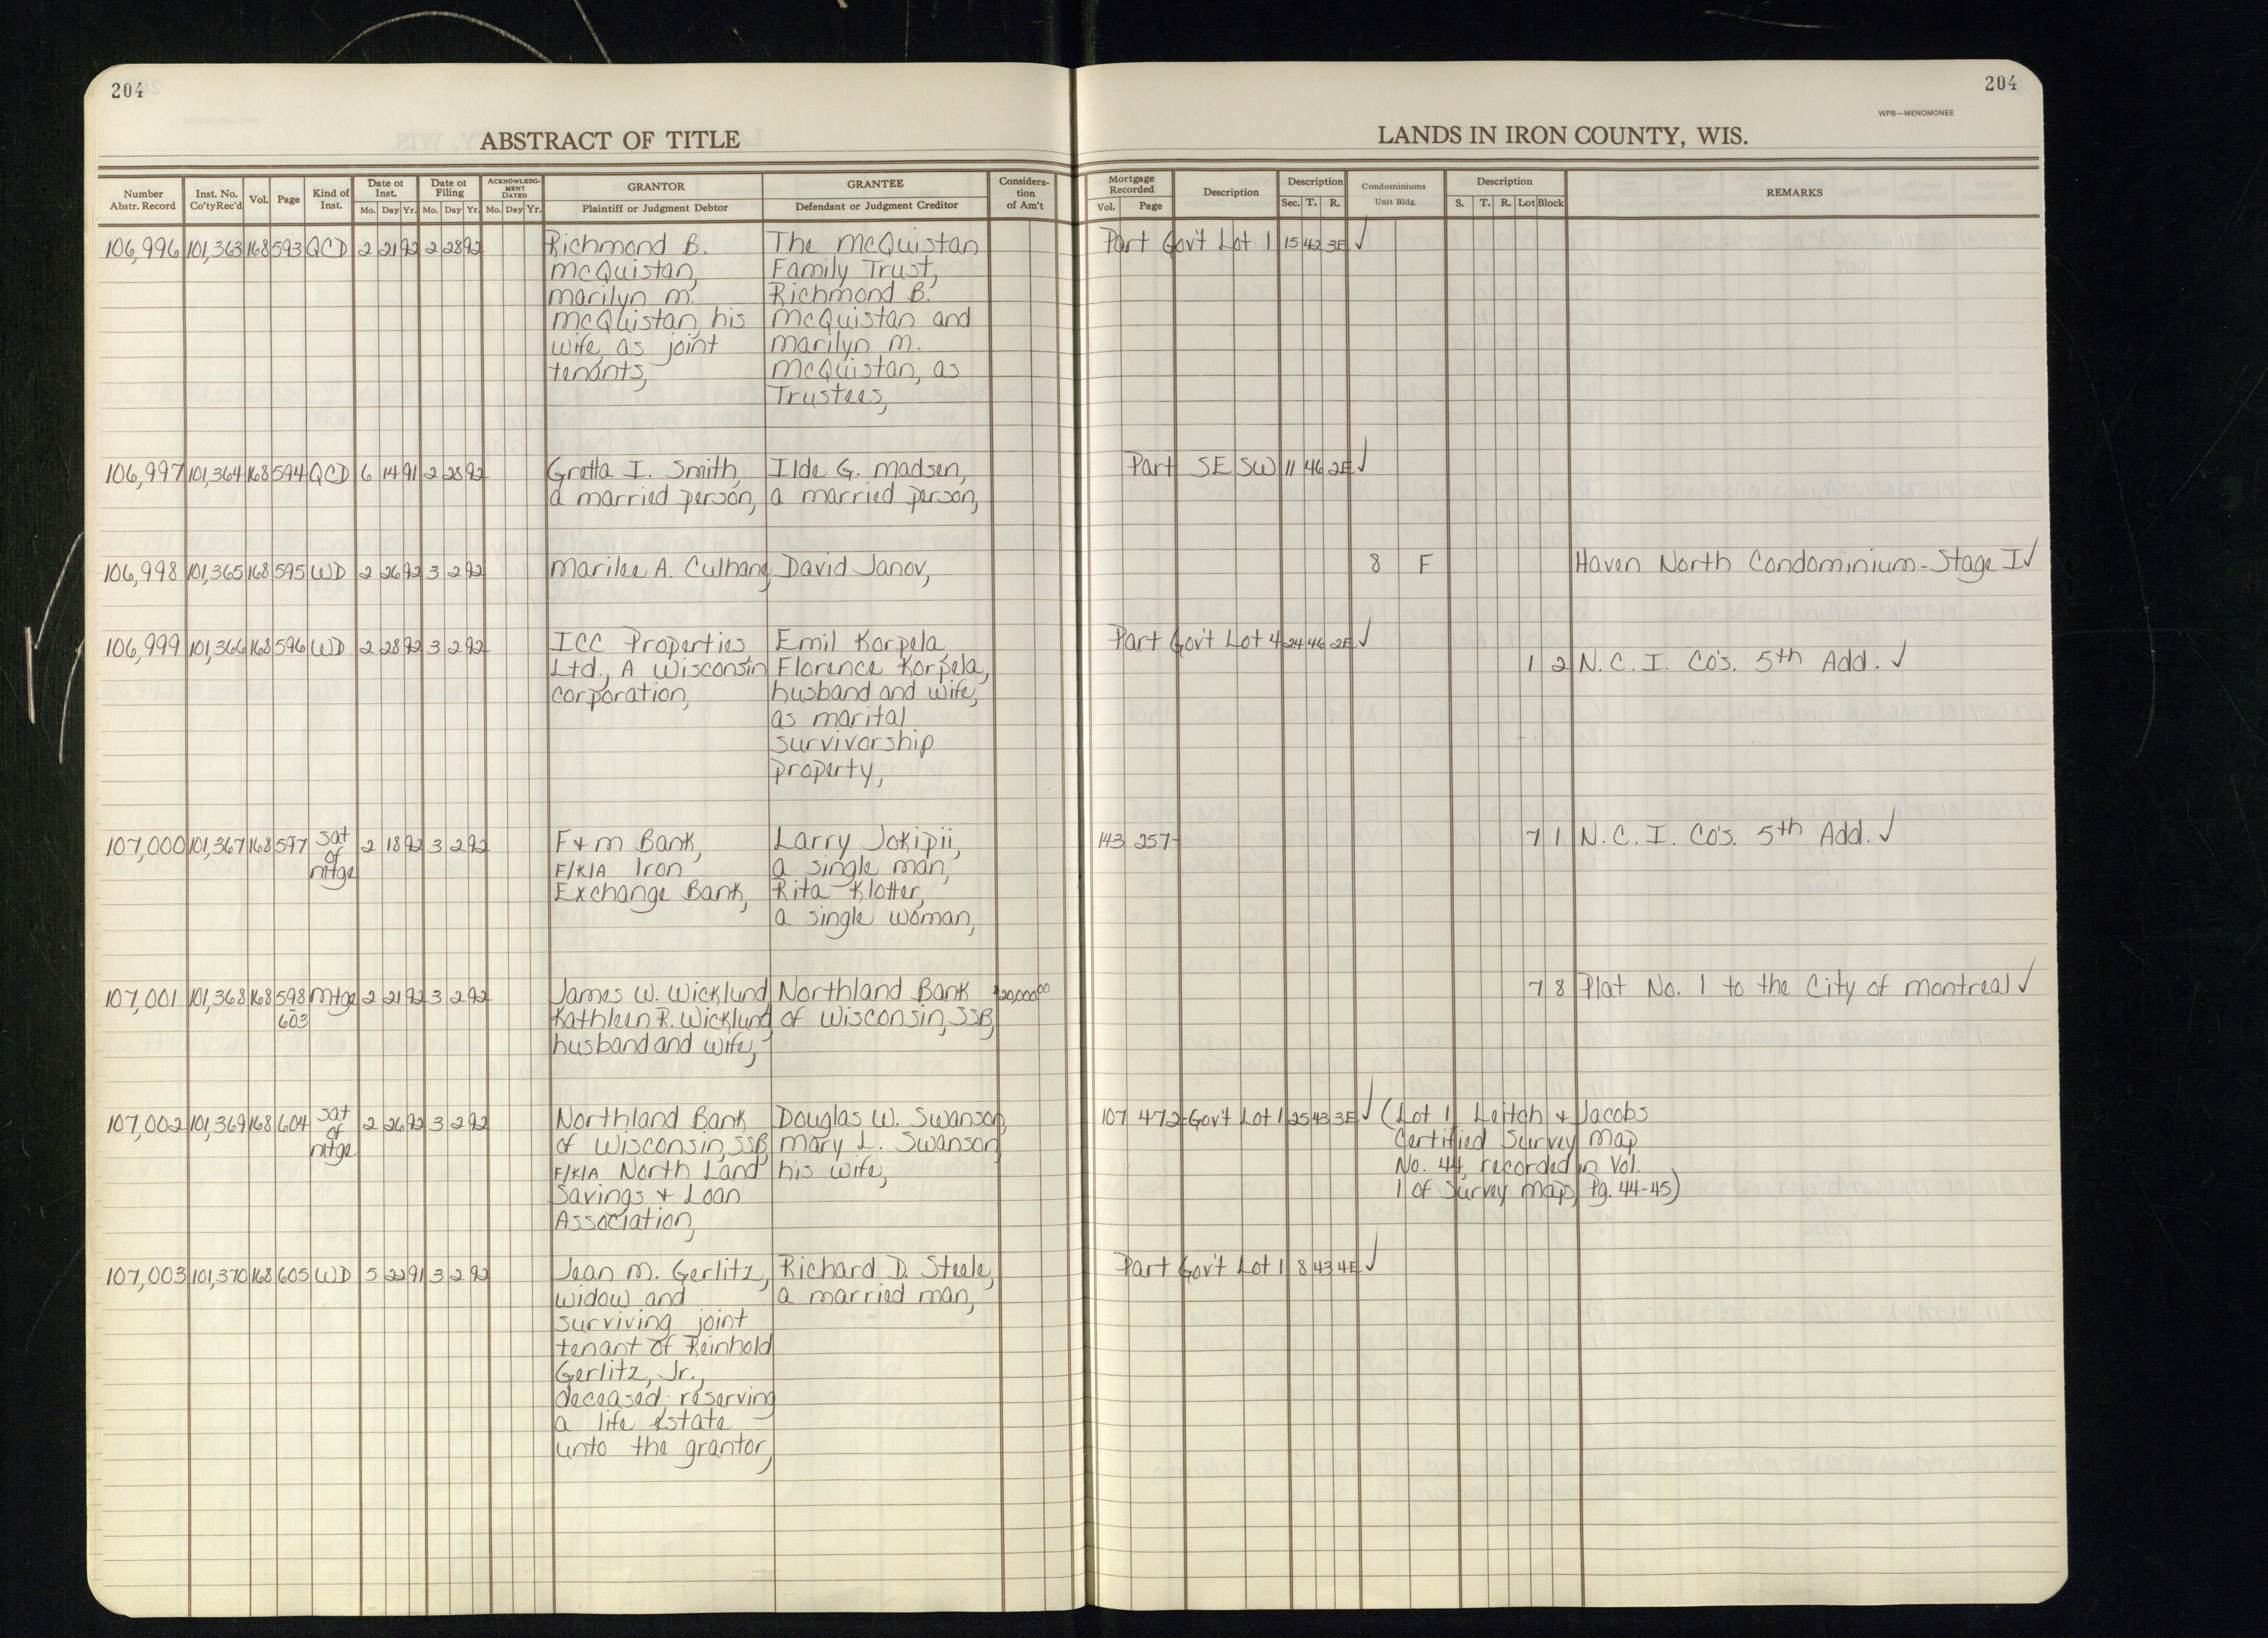 204
204
WPB—MENOMONEE
ABSTRACT OF TITLE
LANDS IN IRON COUNTY, WIS.
Number Abstr. Record | Inst. No. Co'ty Rec'd | Vol. | Page | Kind of Inst. | Date of Inst. Mo. Day Yr. | Date of Filing Mo. Day Yr. | ACKNOWLEDGMENT DATED Mo. Day Yr. | GRANTOR Plaintiff or Judgment Debtor | GRANTEE Defendant or Judgment Creditor | Consideration of Am't | Mortgage Recorded Vol. Page | Description | Description Sec. T. R. | Condominiums Unit Bldg. | Description S. T. R. Lot Block | REMARKS
106,996 101,363 168 593 QCD 2 21 92 2 28 92 Richmond B. | The McQuistan | Part Gov't Lot 1 15 42 3E ✓
McQuistan, | Family Trust,
Marilyn M. | Richmond B.
McQuistan, his | McQuistan and
wife, as joint | Marilyn M.
tenants, | McQuistan, as
Trustees,
106,997 101,364 168 594 QCD 6 14 91 2 28 92 Gretta I. Smith, | Ilde G. Madsen, | Part SE SW 11 46 2E ✓
a married person, | a married person,
106,998 101,365 168 595 WD 2 26 92 3 2 92 Marilee A. Culhane, | David Janov, | 8 F | Haven North Condominium - Stage I ✓
106,999 101,366 168 596 WD 2 28 92 3 2 92 ICC Properties, | Emil Korpela, | Part Gov't Lot 4 24 46 2E ✓
Ltd., A Wisconsin | Florence Korpela, | 1 2 N.C.I. Co's. 5th Add. ✓
corporation, | husband and wife,
as marital
survivorship
property,
107,000 101,367 168 597 Sat of mtge 2 18 92 3 2 92 F & M Bank, | Larry Jokipii, | 143 257- | 7 1 N.C.I. Co's. 5th Add. ✓
F/K/A Iron | a single man,
Exchange Bank, | Rita Klotter,
a single woman,
107,001 101,368 168 598-603 Mtge 2 21 92 3 2 92 James W. Wicklund | Northland Bank | $20,000.00 | 7 8 Plat No. 1 to the City of Montreal ✓
Kathleen R. Wicklund | of Wisconsin, SSB,
husband and wife,
107,002 101,369 168 604 Sat of mtge 2 26 92 3 2 92 Northland Bank | Douglas W. Swanson, | 107 472- Gov't Lot 1 25 43 3E ✓ (Lot 1 Leitch & Jacobs
of Wisconsin, SSB, | Mary L. Swanson, | Certified Survey Map
F/K/A North Land | his wife, | No. 44, recorded in Vol.
Savings & Loan | 1 of Survey Maps, Pg. 44-45)
Association,
107,003 101,370 168 605 WD 5 22 91 3 2 92 Jean M. Gerlitz, | Richard D. Steele, | Part Gov't Lot 1 8 43 4E ✓
widow and | a married man,
surviving joint
tenant of Reinhold
Gerlitz, Jr.,
deceased, reserving
a life estate
unto the grantor,